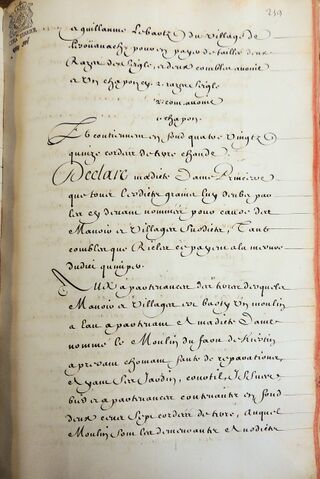 219
a guillaume Lebaste du village de
pour en payer de taille deux
Razes de seigle, et deux combles avoine
et Un chapon cy 2 razes seigle
2 com. avoine
1 chapon.
Et contiennent en fond quatre vingtz
quinze cordes de terre chaude.
Declare madicte Dame Princesse
que tous lesdicts grains luy deubz par
les cy devant nommez pour cause des
Manoir et Villages susdicts, Tant
combles que Riclez se payent a la mesure
dudict quimper.
AUX appartenances des terres desquels
Manoir et Villages est basty Un moulin
a Eau appartenant a madicte Dame
nommé le Moulin du faou de
a present chomant faute de reparations,
Et ayant ses Jardin, courtil,
a appartenances contenants en fond
deux cents sept cordes de terre, auquel
Moulin sont les demeurants a madicte